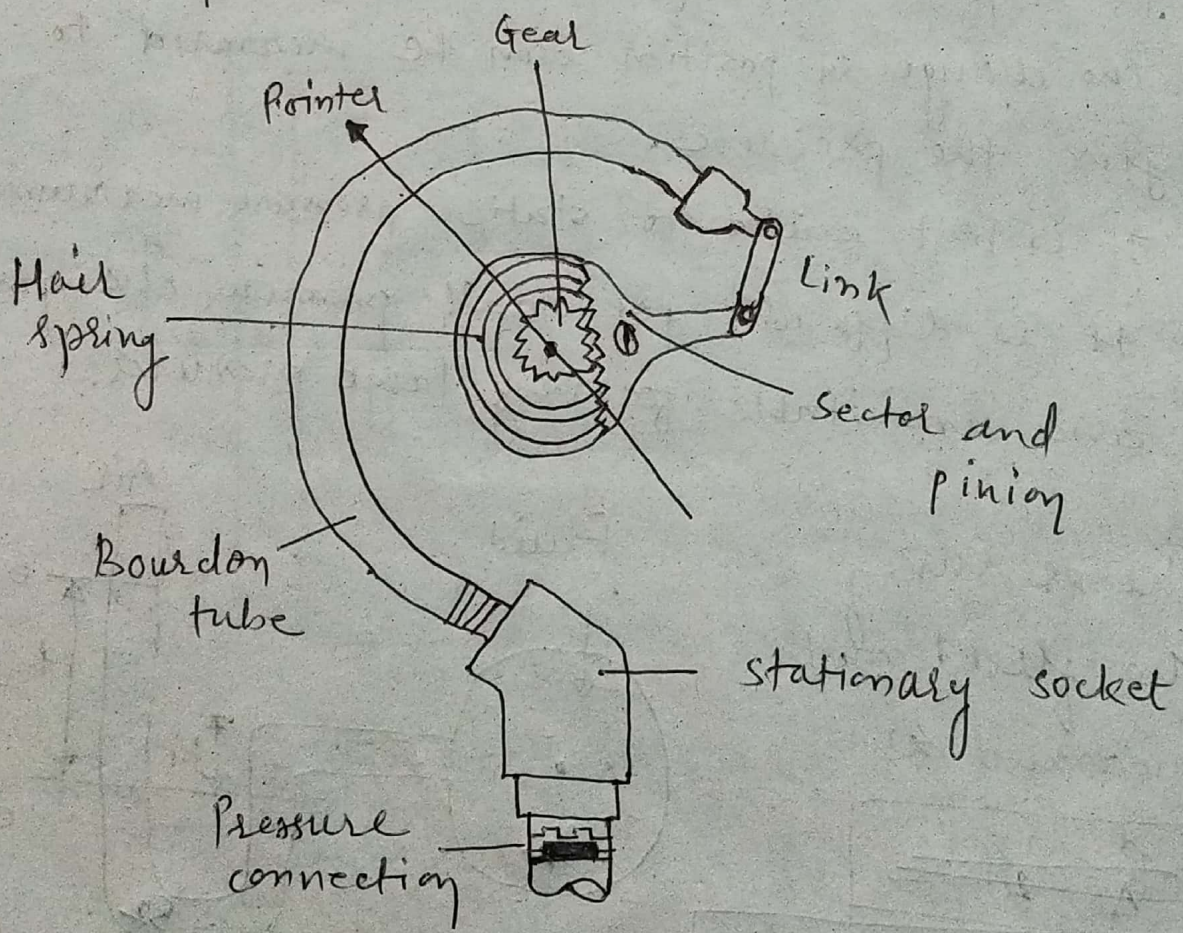 Gear
Pointer
Hair
spring
Link
Sector and
pinion
Bourdon
tube
Stationary socket
Pressure
connection